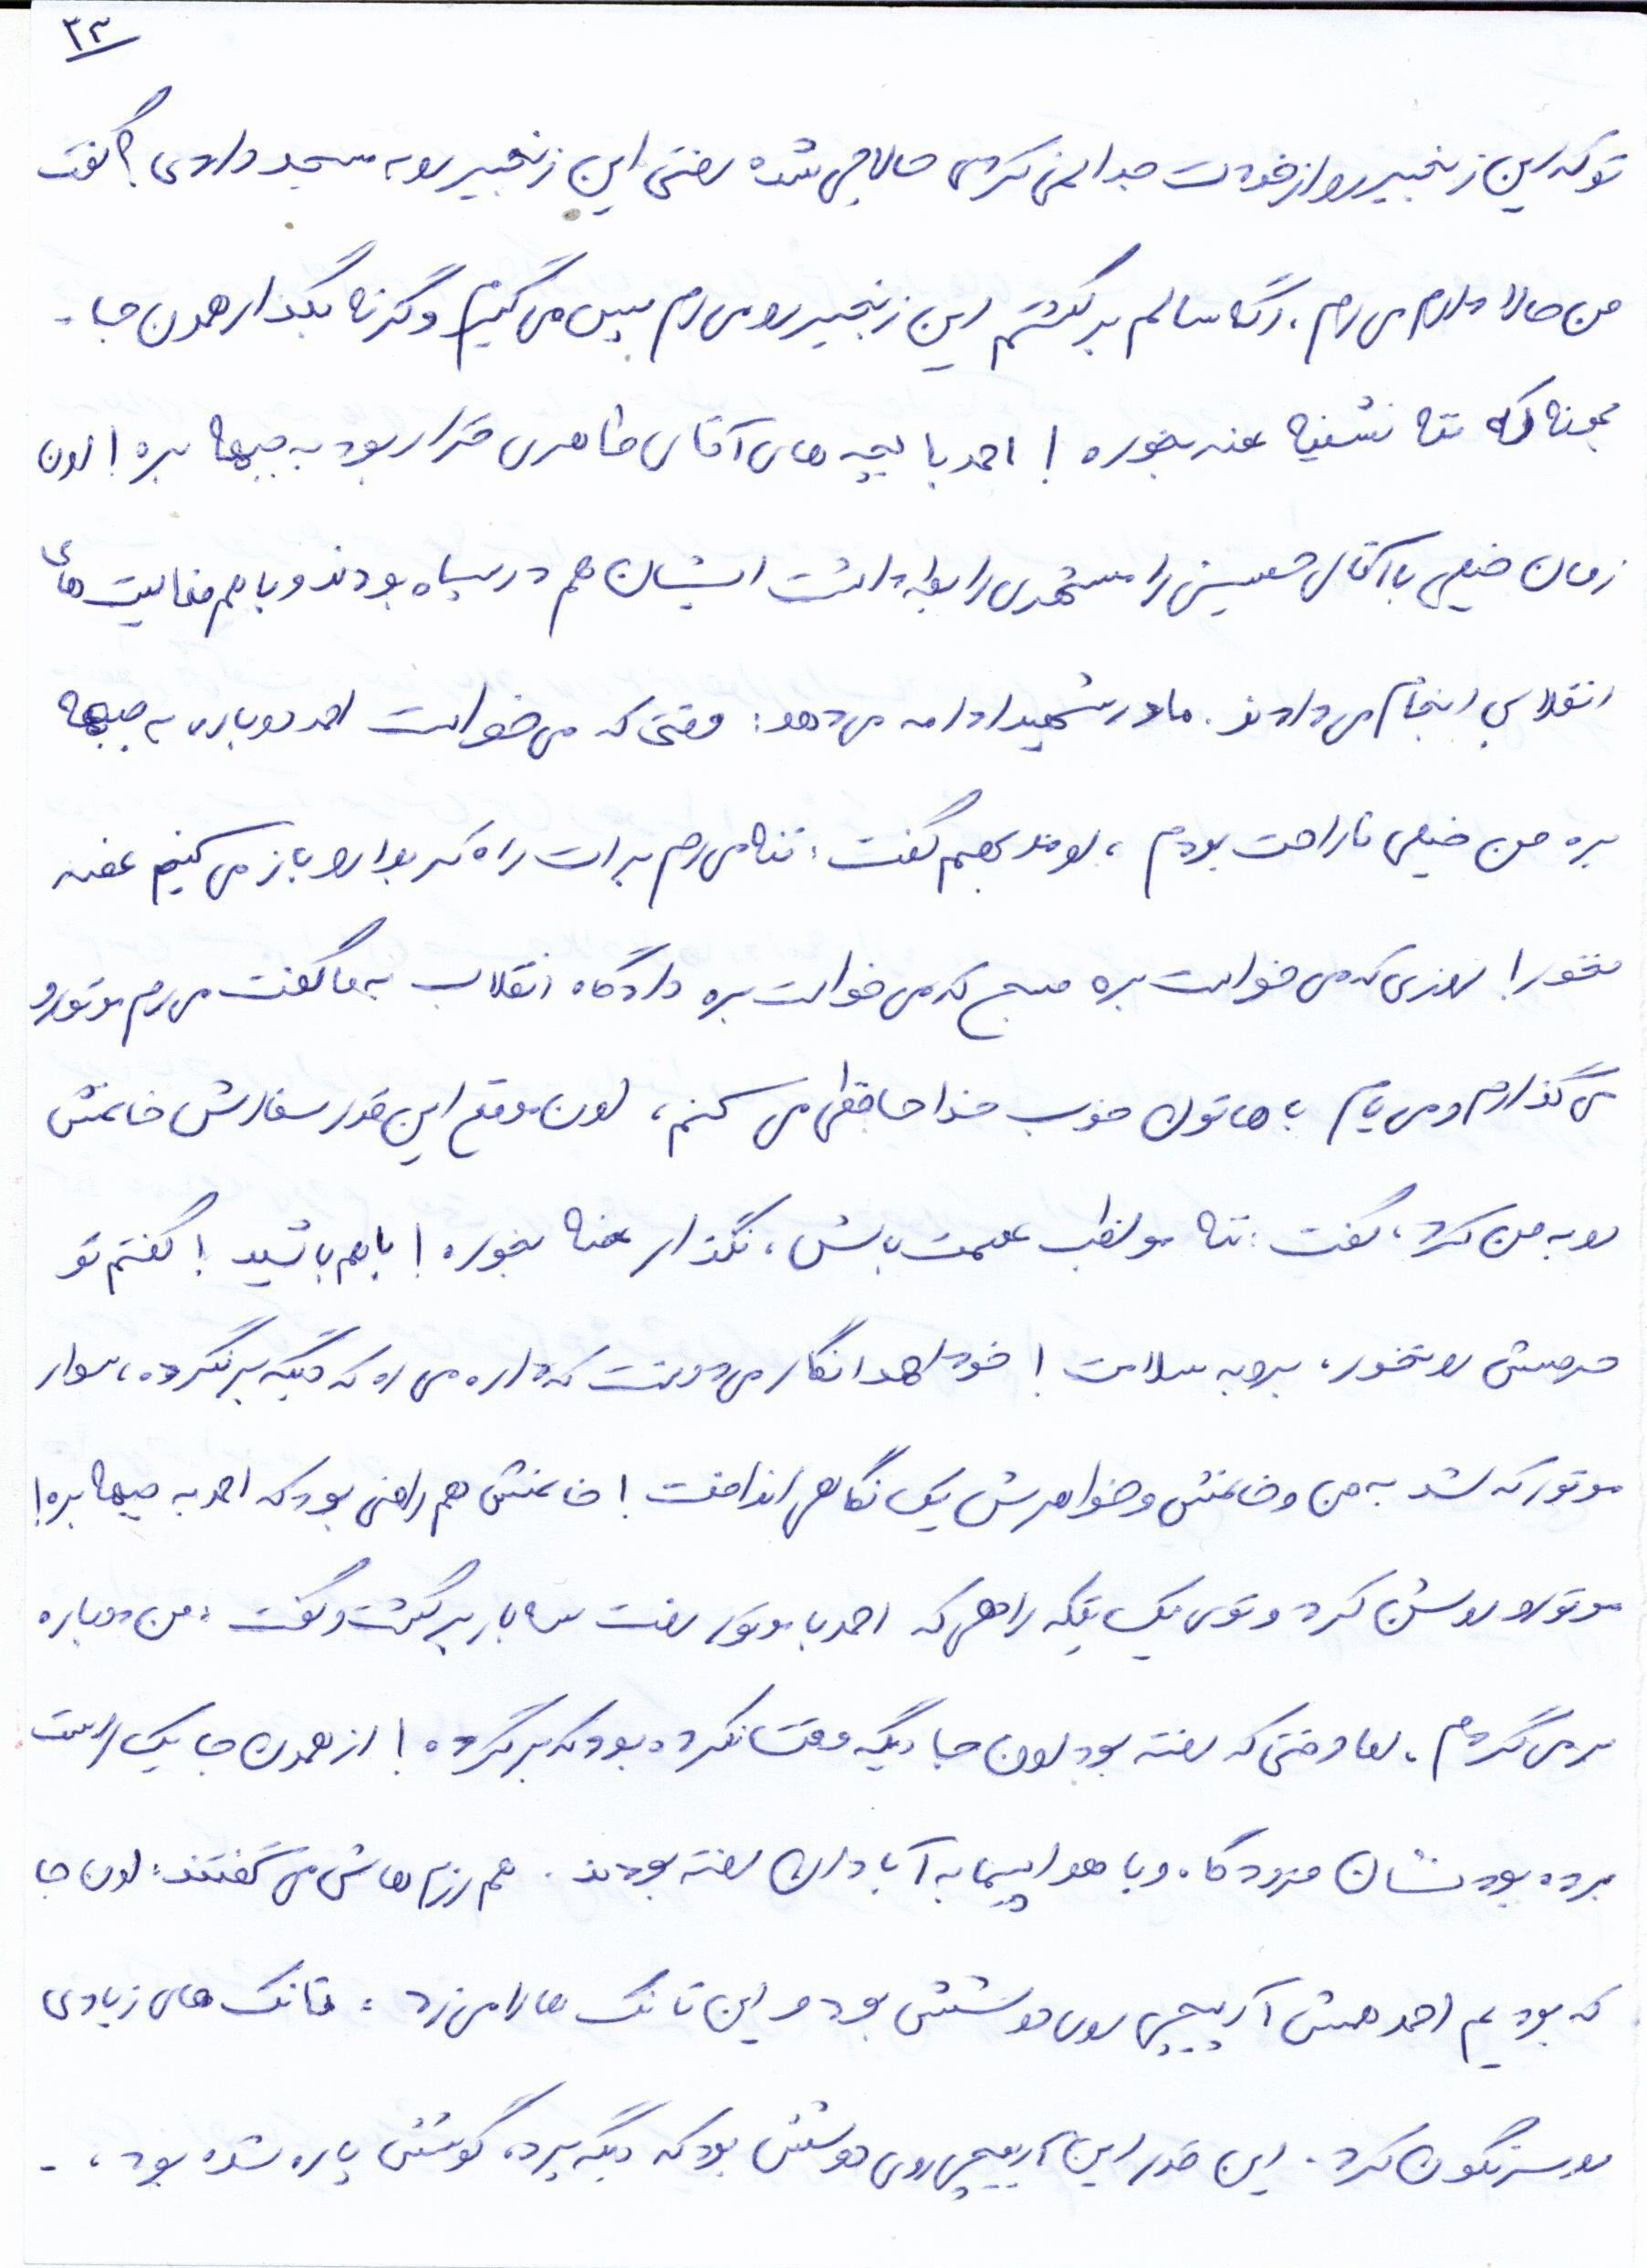 ۲۳
تو که این زنجیر رو از خودت جدا نمی کردی حالا چی شده رفتی این زنجیر رو به مسجد دادی؟ گفت
من حالا دارم می رم، اگه سالم برگشتم این زنجیر رو می رم پس می گیرم وگرنه بگذار همون جا -
بمونه که ننه نشینه غصه بخوره! احمد با بچه های آقای طاهری قرار بود به جبهه بره! اون
زمان خیلی با آقای حسینی را مستمری رابطه داشت ایشان هم در سپاه بودند و با هم فعالیت های
انقلابی انجام می دادند. مادر شهید ادامه می دهد: وقتی که می خواست احمد دوباره به جبهه
بره من خیلی ناراحت بودم، اومد بهم گفت: ننه می رم برات راه کربلا رو باز می کنیم غصه
نخور! روزی که می خواست بره صبح که می خواست بره دادگاه انقلاب به ما گفت می رم موتور رو
می گذارم و می یام باهاتون خوب خداحافظی می کنم، اون موقع این قدر سفارش خانمش
رو به من کرد، گفت: ننه مواظب عصمت باش، نگذار غصه بخوره! با هم باشید! گفتم تو
حرصش رو نخور، برو به سلامت! خود احمد انگار می دونست که داره می ره که دیگه برنگرده، سوار
موتور که شد به من و خانمش و خواهرش یک نگاهی انداخت! خانمش هم راضی بود که احمد به جبهه بره!
موتور رو روشن کرد و توی یک تیکه راهی که احمد با موتور رفت سه بار برگشت و گفت: من دوباره
بر می گردم. اما وقتی که رفته بود اون جا دیگه وقت نکرده بود که برگرده! از همون جا یک راست
برده بودنشان فرودگاه و با هواپیما به آبادان رفته بودند. هم رزم هاش می گفتند: اون جا
که بودیم احمد همش آرپیچی روی دوشش بود و این تانک ها را می زد: تانک های زیادی
رو سرنگون کرد. این قدر این آرپیچی روی دوشش بود که دیگه پرده گوشش پاره شده بود، -